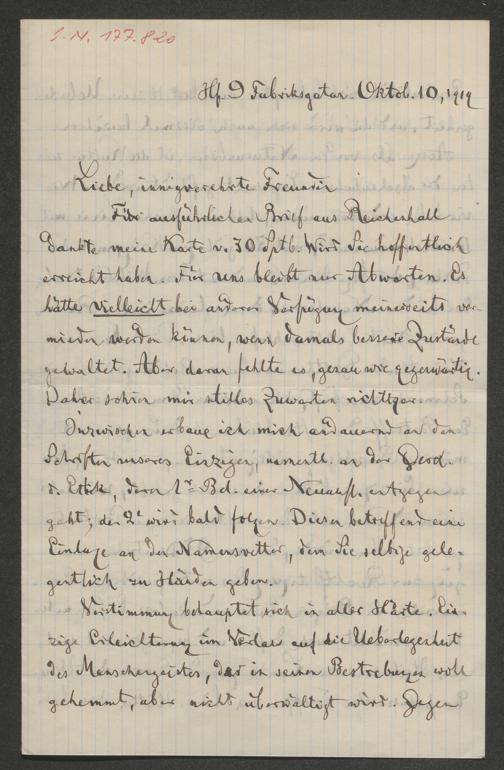 I. N. 177.820
Hf 9 Fabriksgstr. Oktob. 10, 1919
Liebe, innigverehrte Freundin
Für ausführlichen Brief aus Reichenhall
dankte meine Karte v. 30 Sptb. Wird Sie hoffentlich
erreicht haben. Für uns bleibt nur Abwarten. Es
hätte vielleicht bei anderer Verfügung meinerseits ver-
mieden werden können, wenn damals bessere Zustände
gewaltet. Aber daran fehlte es, genau wie gegenwärtig.
Daher schien mir stilles Zuwarten richtiger.
Inzwischen erbaue ich mich andauernd an den
Schriften unseres Einzigen, namentl. an der
d. Ethik, deren 1r Bd. einer Neuaufl. entgegen
geht; der 2e wird bald folgen. Diesen betreffend eine
Einlage an den Namensvetter, dem Sie selbige gele-
gentlich zu Händen geben.
Verstimmung behauptet sich in aller Härte. Ein-
zige Erleichterung im Verlaß auf die Ueberlegenheit
des Menschengeistes, der in seinen Bestrebungen wohl
gehemmt, aber nicht überwältigt wird. Gegen